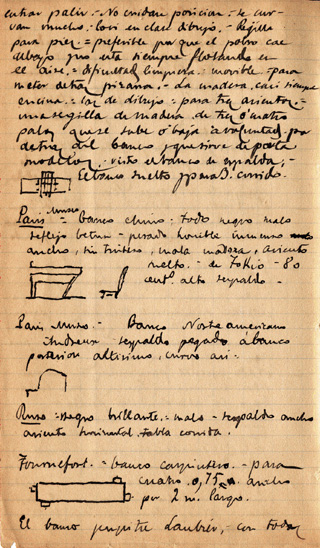 entrar palir.- No cuidan posicion.- se cur-
van mucho.- Casi en clase dibujo.- Rejilla
para pies = preferible porque el polvo cae
debajo pero está siempre flotando en
el aire.= dificultad limpieza.= movible para
meter detras pizarra.- La madera, casi siempre
encina.= las de dibujo.- para tres asientos
una regilla de madera de tres o cuatro
palos que se sube o baja a voluntad por
detras del banco y que sirve de porta
modelos.- visto el banco de espalda,-
El banco suelto para 3. corrido.
Paris Museo = Banco chino.- todo negro malo
reflejo betun - pesado horrible inmenso
ancho, sin tintero, mala madera, asiento
suelto.- de Tokio - 80
cent. alto respaldo.-
Paris Museo.- Banco Norte americano
Andrews respaldo pegado a banco
posterior altisimo, curvo asi.-
Ruso = negro brillante.- malo - respaldo ancho
asiento horizontal, tabla corrida.
Tournefort.- banco carpintero.- para
cuatro 0,75 ancho
por 2 m. largo.
El banco pupitre Laubier,- con todas